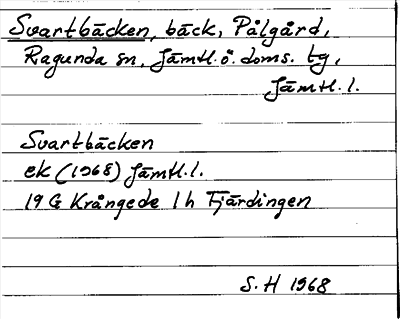 Svartbäcken, bäck, Pålgård,
Ragunda sn, Jämtl. ö. doms. tg,
Jämtl. l.
Svartbäcken
ek (1968) Jämtl. l.
19 G Krångede 1 h Fjärdingen
S. H 1968